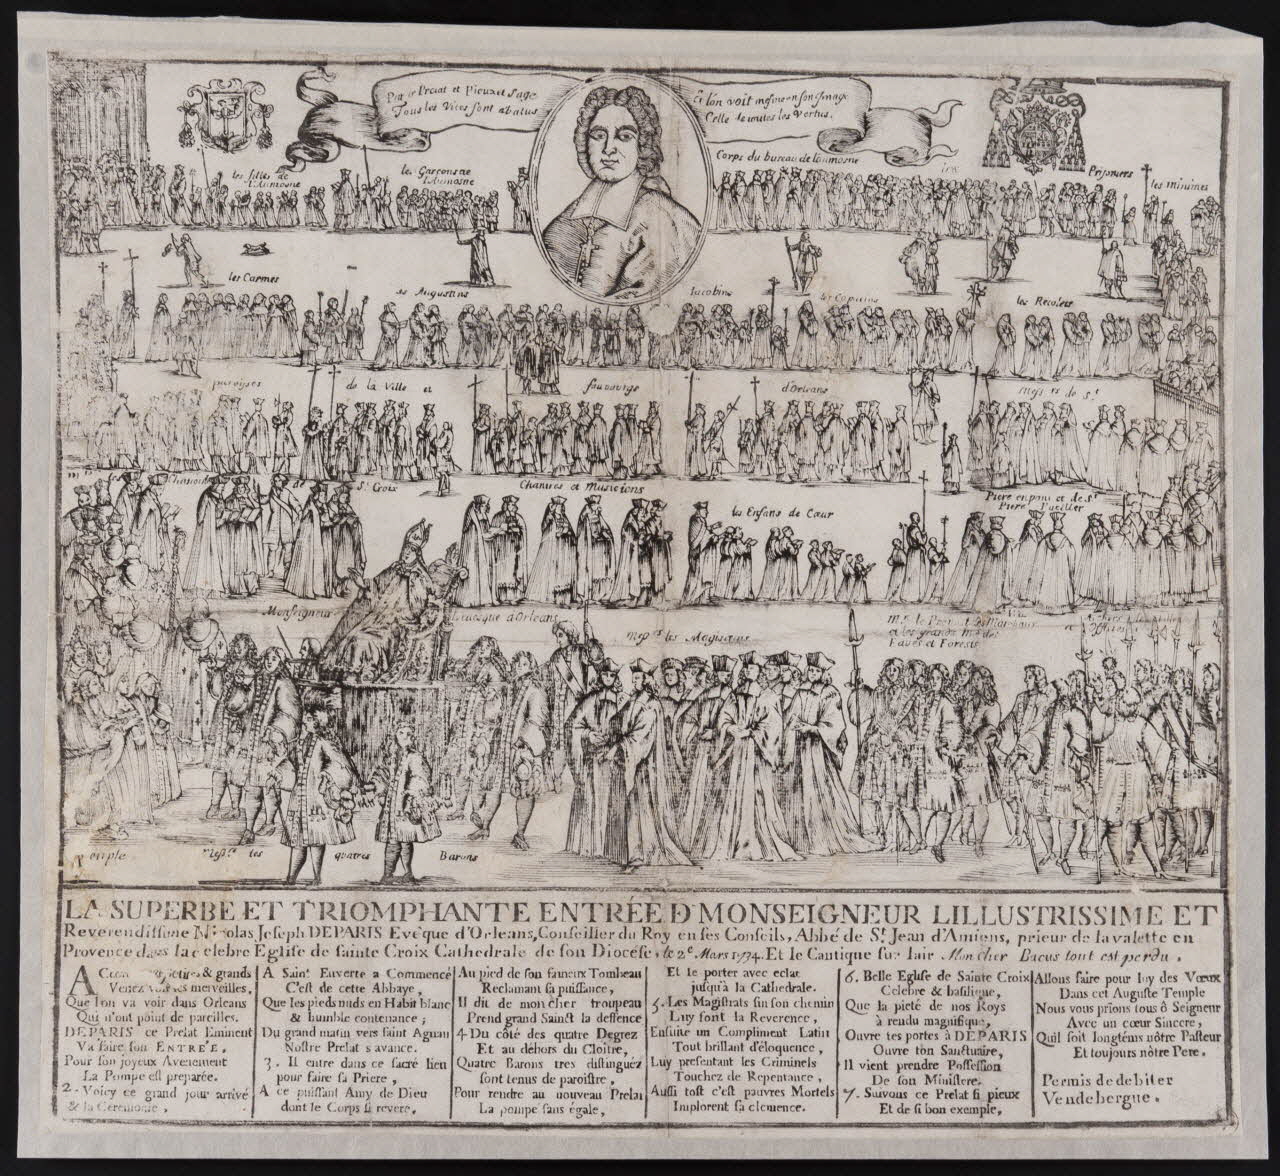 Prelat et Pieux et Sage
Tous les Vices sont abatus
Et l'on voit mesme en son Image
Celle de toutes les Vertus.
les filles de
l'Aumosne
les Garçons de
l'Aumosne
Corps du bureau de l'aumosne
Prisoniers
les minimes
les Carmes
les Augustins
Iacobins
les Capucins
les Recolets
paroisses
de la Ville et
fauxbourgs
d'Orleans
Mess rs de St
Chanoines de
St Croix
Chantres et Musiciens
les Enfans de Cœur
Piere enpont et de St
Piere
Monseigneur
L'evesque d'Orleans
Mess rs les Magistrats
Mr le Prevost des Marchans
et les grands Mes des
Eaves et Forests
peuple
Mess rs les quatres Barons
LA SUPERBE ET TRIOMPHANTE ENTRÉE D'MONSEIGNEUR LILLUSTRISSIME ET
Reverendissime Nicolas Joseph DEPARIS Evêque d'Orleans, Conseiller du Roy en ses Conseils, Abbé de St Jean d'Amiens, prieur de la valette en
Provence dans la celebre Eglise de sainte Croix Cathedrale de son Diocése, le 2e Mars 1734. Et le Cantique sur lair Mon cher Bacus tout est perdu.
& grands
Venez merveilles,
Que l'on va voir dans Orleans
Qui n'ont point de pareilles.
DEPARIS ce Prelat Eminent
Va faire son ENTRÉE,
Pour son joyeux Avenement
La Pompe est preparée.
2. Voicy ce grand jour arrivé
& la Ceremonie,
A Saint Euverte a Commencé
C'est de cette Abbaye,
Que les pieds nuds en Habit blanc
& humble contenance;
Du grand matin vers saint Agnan
Nostre Prelat s'avance.
3. Il entre dans ce sacré lieu
pour faire sa Priere,
A ce puissant Amy de Dieu
dont le Corps si revere,
Au pied de son fameux Tombeau
Reclamant sa puissance,
Il dit de mon cher troupeau
Prend grand Sainct la deffence
4. Du côté des quatre Degrez
Et au dehors du Cloitre,
Quatre Barons tres distinguez
sont tenus de paroistre,
Pour rendre au nouveau Prelat
La pompe sans égale,
Et le porter avec eclat
jusqu'à la Cathedrale.
5. Les Magistrats sur son chemin
Luy font la Reverence,
Ensuite un Compliment Latin
Tout brillant d'éloquence,
Luy presentant les Criminels
Touchez de Repentance,
Aussi tost c'est pauvres Mortels
Implorent sa clemence.
6. Belle Eglise de Sainte Croix
Celebre & basilique,
Que la pieté de nos Roys
à rendu magnifique,
Ouvre tes portes à DEPARIS
Ouvre ton Sanctuaire,
Il vient prendre Possession
De son Ministere.
7. Suivons ce Prelat si pieux
Et de si bon exemple,
Allons faire pour luy des Vœux
Dans cet Auguste Temple
Nous vous prïons tous ô Seigneur
Avec un cœur Sincere,
Quil soit longtéms nôtre Pasteur
Et toujours nôtre Pere.
Permis de debiter
Vendebergue.